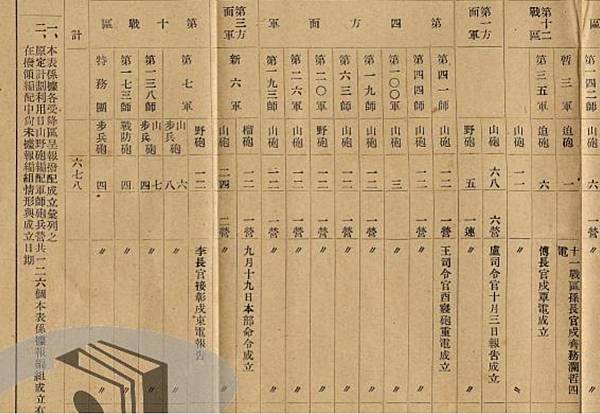 第一四二師 山砲 六
第十二戰區 暫三軍 迫砲 一 〃 十一戰區孫長官戍齊務瀾哲四電
第三五軍 迫砲 六 〃 傅長官戍覃電成立
山砲 一一 〃 〃
第一方面軍 山砲 六八 六營 〃 盧司令官十月三日報告成立
野砲 五 一連 〃 〃
第四方面軍 第四一師 山砲 一二 一營 〃 王司令官酉寢砲重電成立
第四四師 山砲 一二 一營 〃 〃
第一〇〇軍 山砲 三 〃 〃
第一九師 山砲 一二 一營 〃 〃
第六三師 山砲 一二 一營 〃 〃
第二〇軍 野砲 一二 一營 〃 〃
第二六軍 山砲 一二 一營 〃 〃
第一九三師 山砲 一二 一營 〃 〃
第三方面軍 新六軍 榴砲 一二 一營 〃 九月十九日本部命令成立
山砲 二四 二營 〃 〃
第十戰區 野砲 一二 李長官接彰戍東電報告
第七軍 山砲 六 步兵砲 八 〃
第一三八師 山砲 七 步兵砲 四 〃
第一七三師 戰防砲 四 〃
特務團 步兵砲 四 〃
計 六七八
一、本表係據各受降區呈報撥配成立彙列之
二、原定計劃利用日山野砲編配軍師砲兵營共一二六個本表係據報編組成立
在撥領編配中尚未據報編組情形與成立日期